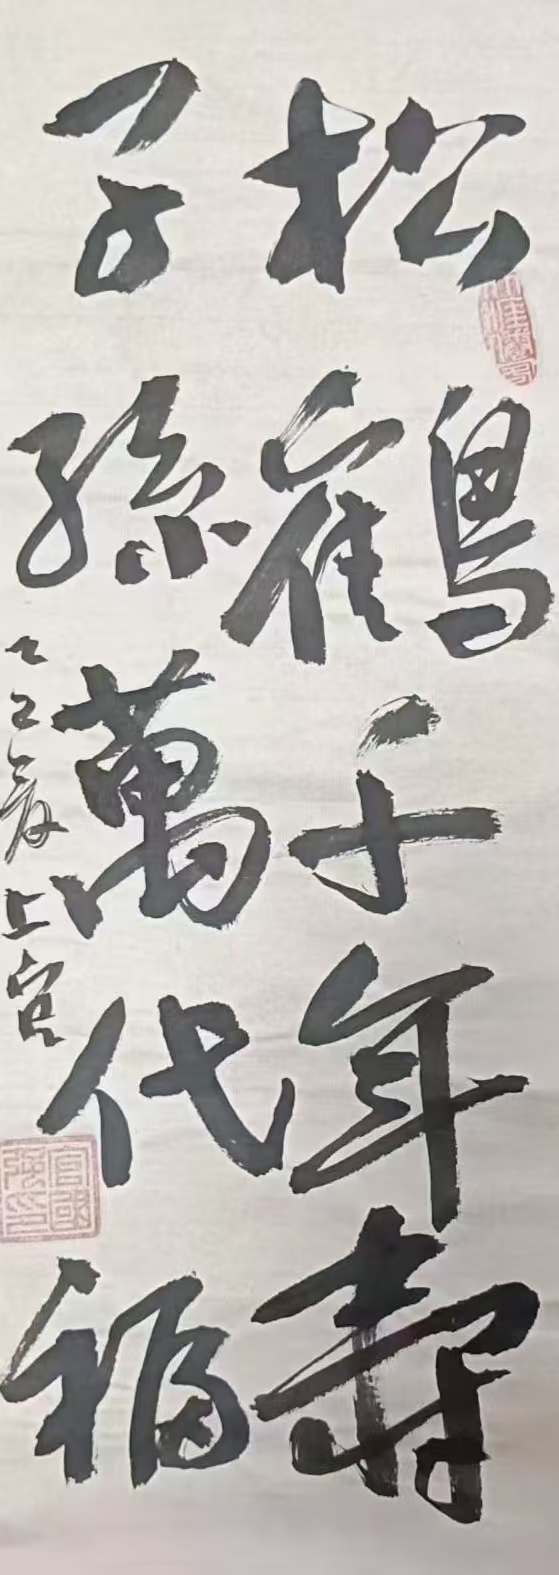 松鶴千年壽
子孫萬代福
乙丑夏上官